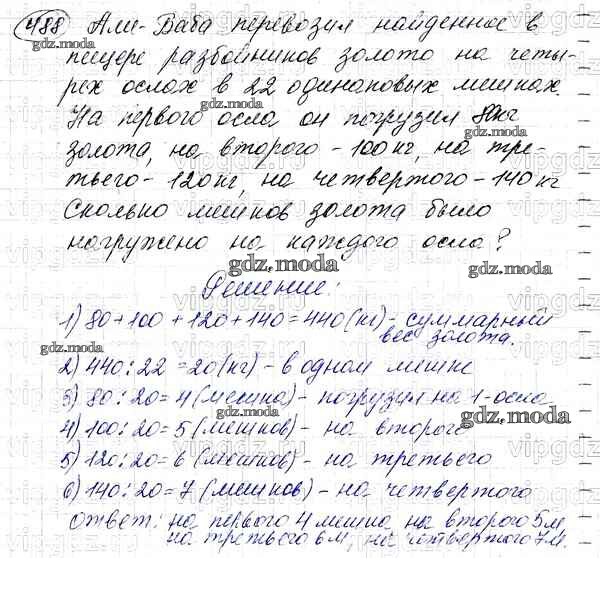 488 Али-Баба перевозил найденное в
пещере разбойников золото на четы-
рех ослах в 22 одинаковых мешках.
На первого осла он погрузил 80кг
золота, на второго - 100кг, на тре-
тьего - 120кг, на четвертого - 140кг
Сколько мешков золота было
нагружено на каждого осла?
Решение:
1) 80+100+120+140=440(кг)- суммарный
вес золота.
2) 440:22=20(кг)- в одном мешке
3) 80:20=4(мешка)- погрузил на 1-осла
4) 100:20=5(мешков)- на второго
5) 120:20=6(мешков)- на третьего
6) 140:20=7(мешков)- на четвертого
Ответ: на первого 4 мешка, на второго 5м,
на третьего 6м, на четвертого 7м.
gdz.moda